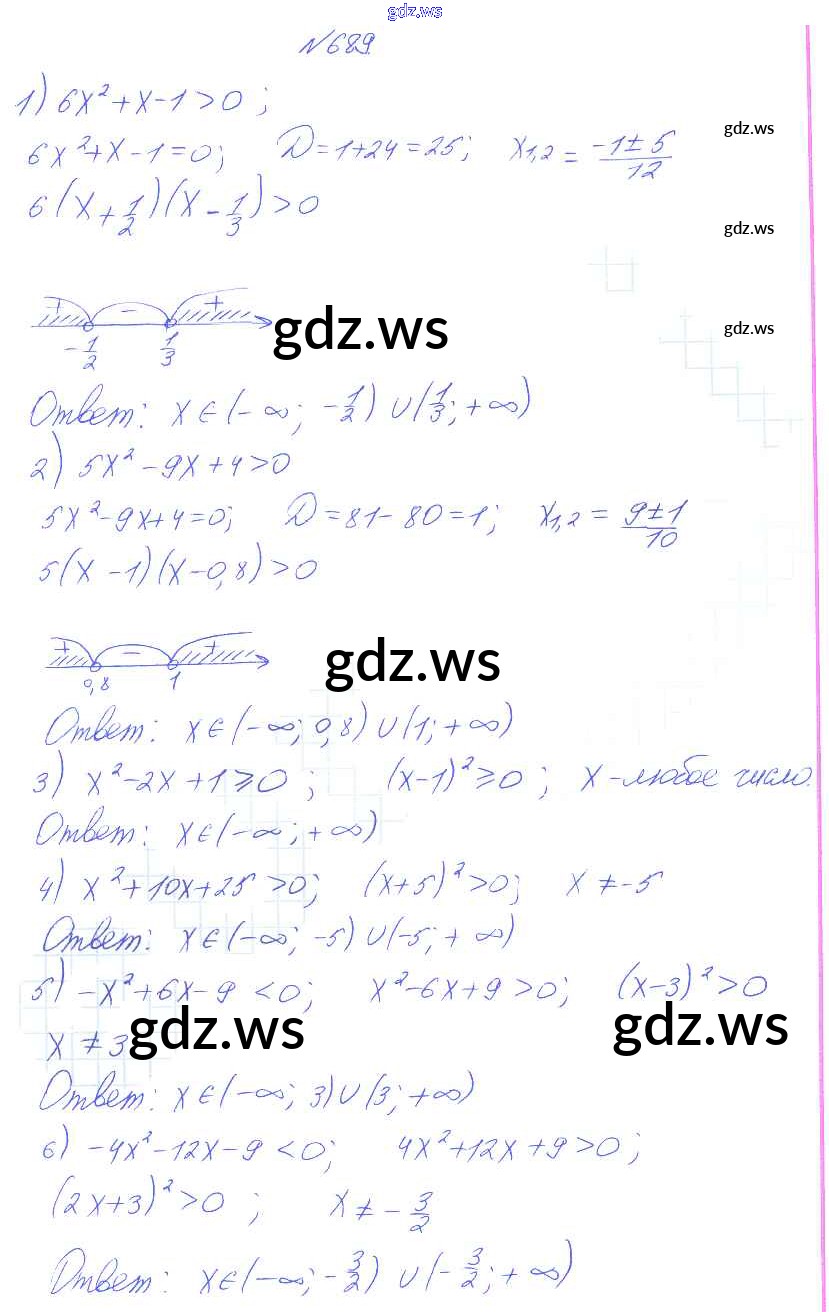 gdz.ws
N689
1) 6x²+x-1>0;
6x²+x-1=0; D=1+24=25; x₁,₂=(-1±5)/12
gdz.ws
6(x+1/2)(x-1/3)>0
gdz.ws
+ - +
gdz.ws gdz.ws
-1/2 1/3
Ответ: x∈(-∞; -1/2) ∪(1/3; +∞)
2) 5x²-9x+4>0
5x²-9x+4=0; D=81-80=1; x₁,₂=(9±1)/10
5(x-1)(x-0,8)>0
+ - +
gdz.ws
0,8 1
Ответ: x∈(-∞; 0,8) ∪(1; +∞)
3) x²-2x+1≥0; (x-1)²≥0; x-любое число.
Ответ: x∈(-∞; +∞)
4) x²+10x+25>0; (x+5)²>0; x≠-5
Ответ: x∈(-∞; -5) ∪(-5; +∞)
5) -x²+6x-9<0; x²-6x+9>0; (x-3)²>0
x≠3 gdz.ws gdz.ws
Ответ: x∈(-∞; 3)∪(3; +∞)
6) -4x²-12x-9<0; 4x²+12x+9>0;
(2x+3)²>0; x≠-3/2
Ответ: x∈(-∞; -3/2) ∪(-3/2; +∞)